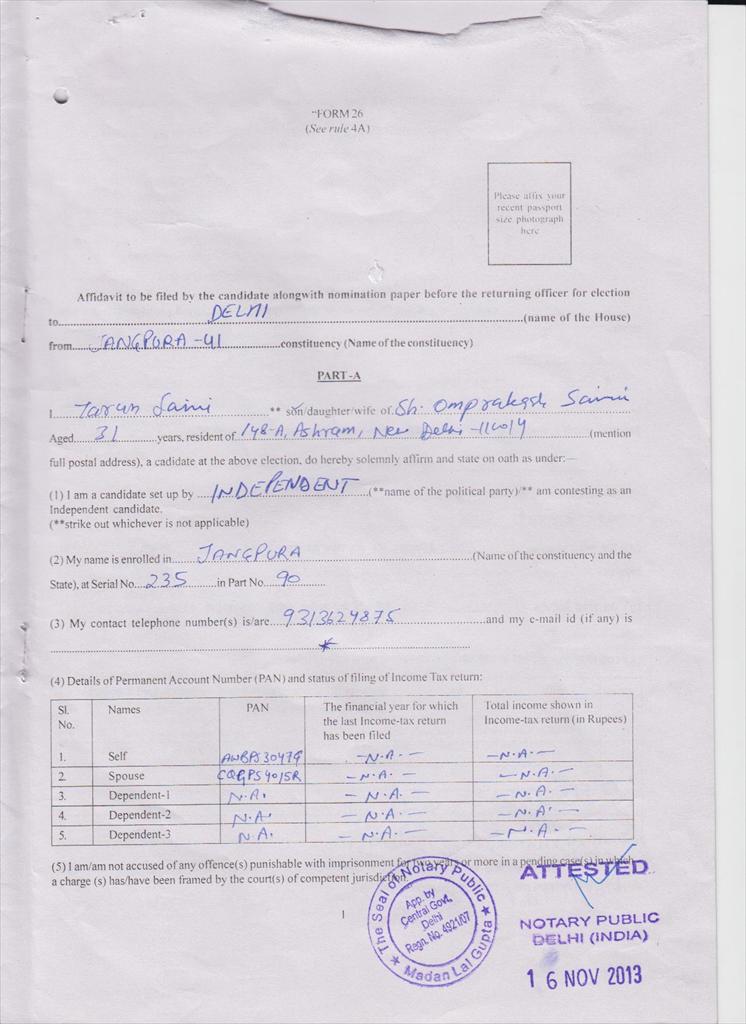 "FORM 26
(See rule 4A)
Please affix your
recent passport
size photograph
here
Affidavit to be filed by the candidate alongwith nomination paper before the returning officer for election
to DELHI (name of the House)
from JANGPURA-41 constituency (Name of the constituency)
PART-A
I Tarun Saini ** son/daughter/wife of Sh. Omprakash Saini
Aged 31 years, resident of 148-A, Ashram, New Delhi-110014 (mention
full postal address), a cadidate at the above election, do hereby solemnly affirm and state on oath as under:—
(1) I am a candidate set up by INDEPENDENT (**name of the political party)/** am contesting as an
Independent candidate.
(**strike out whichever is not applicable)
(2) My name is enrolled in JANGPURA (Name of the constituency and the
State), at Serial No. 235 in Part No. 90
(3) My contact telephone number(s) is/are 9313624875 and my e-mail id (if any) is
(4) Details of Permanent Account Number (PAN) and status of filing of Income Tax return:
Sl. No. Names PAN The financial year for which the last Income-tax return has been filed Total income shown in Income-tax return (in Rupees)
1. Self -N.A.- -N.A.-
2. Spouse -N.A.- -N.A.-
3. Dependent-1 N.A. -N.A.- -N.A.-
4. Dependent-2 N.A. -N.A.- -N.A.-
5. Dependent-3 N.A. -N.A.- -N.A.-
(5) I am/am not accused of any offence(s) punishable with imprisonment for two years or more in a pending case(s) in which
a charge (s) has/have been framed by the court(s) of competent jurisdiction.
1
The Seal of Notary Public
App. by
Central Govt.
Delhi
Regn. No. 4921/07
Madan Lal Gupta
ATTESTED
NOTARY PUBLIC
DELHI (INDIA)
16 NOV 2013